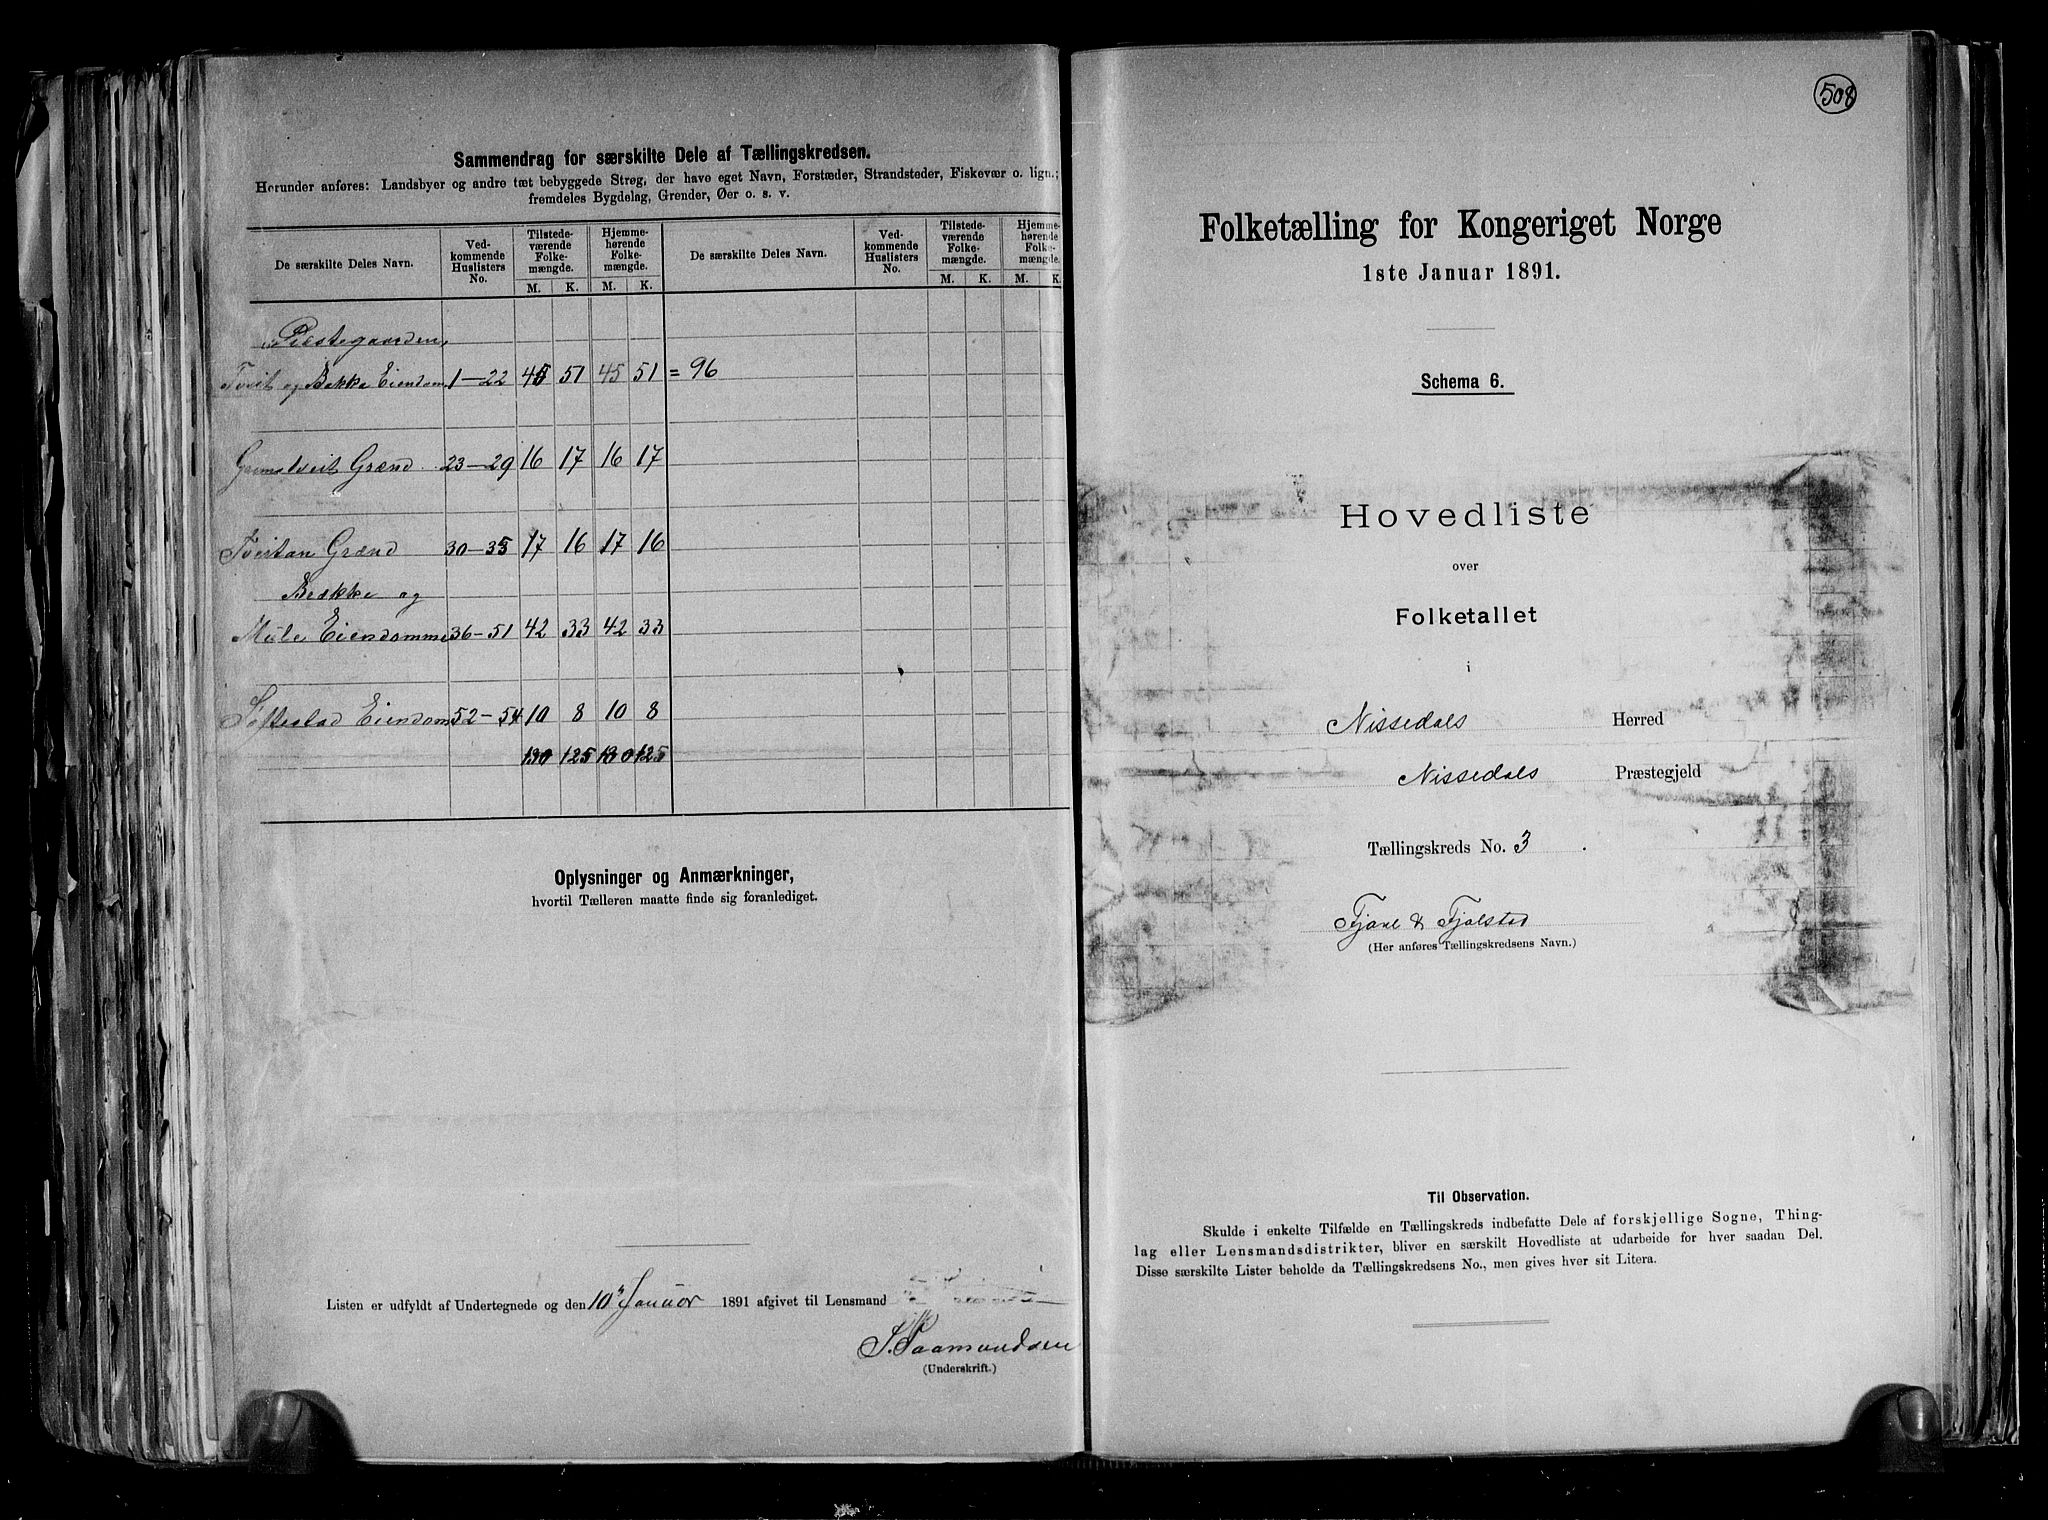 Sammendrag for særskilte Dele af Tællingskredsen.
Herunder anføres: Landsbyer og andre tæt bebyggede Strøg, der have eget Navn, Forstæder, Strandsteder, Fiskevær o. lign.;
fremdeles Bygdelag, Grender, Øer o. s. v.
De særskilte Deles Navn. Ved-kommende Huslisters No. Tilstede-værende Folke-mængde. Hjemme-hørende Folke-mængde. De særskilte Deles Navn. Ved-kommende Huslisters No. Tilstede-værende Folke-mængde. Hjemme-hørende Folke-mængde.
M. K. M. K. M. K. M. K.
Præstegaarden,
Tveit og Bakka Eiendom 1—22 45 51 45 51 = 96
Grænd 23—29 16 17 16 17
Tveitan Grænd 30—35 17 16 17 16
og
Eiendomme 36—51 42 33 42 33
Eiendom 52—54 10 8 10 8
130 125 130 125
Oplysninger og Anmærkninger,
hvortil Tælleren maatte finde sig foranlediget.
Listen er udfyldt af Undertegnede og den 10 Januar 1891 afgivet til Lensmand
(Underskrift.)
508
Folketælling for Kongeriget Norge
1ste Januar 1891.
Schema 6.
Hovedliste
over
Folketallet
i
Nissedals Herred
Nissedals Præstegjeld
Tællingskreds No. 3.
Fjone & Fjalstad
(Her anføres Tællingskredsens Navn.)
Til Observation.
Skulde i enkelte Tilfælde en Tællingskreds indbefatte Dele af forskjellige Sogne, Thing-
lag eller Lensmandsdistrikter, bliver en særskilt Hovedliste at udarbeide for hver saadan Del.
Disse særskilte Lister beholde da Tællingskredsens No., men gives hver sit Litera.